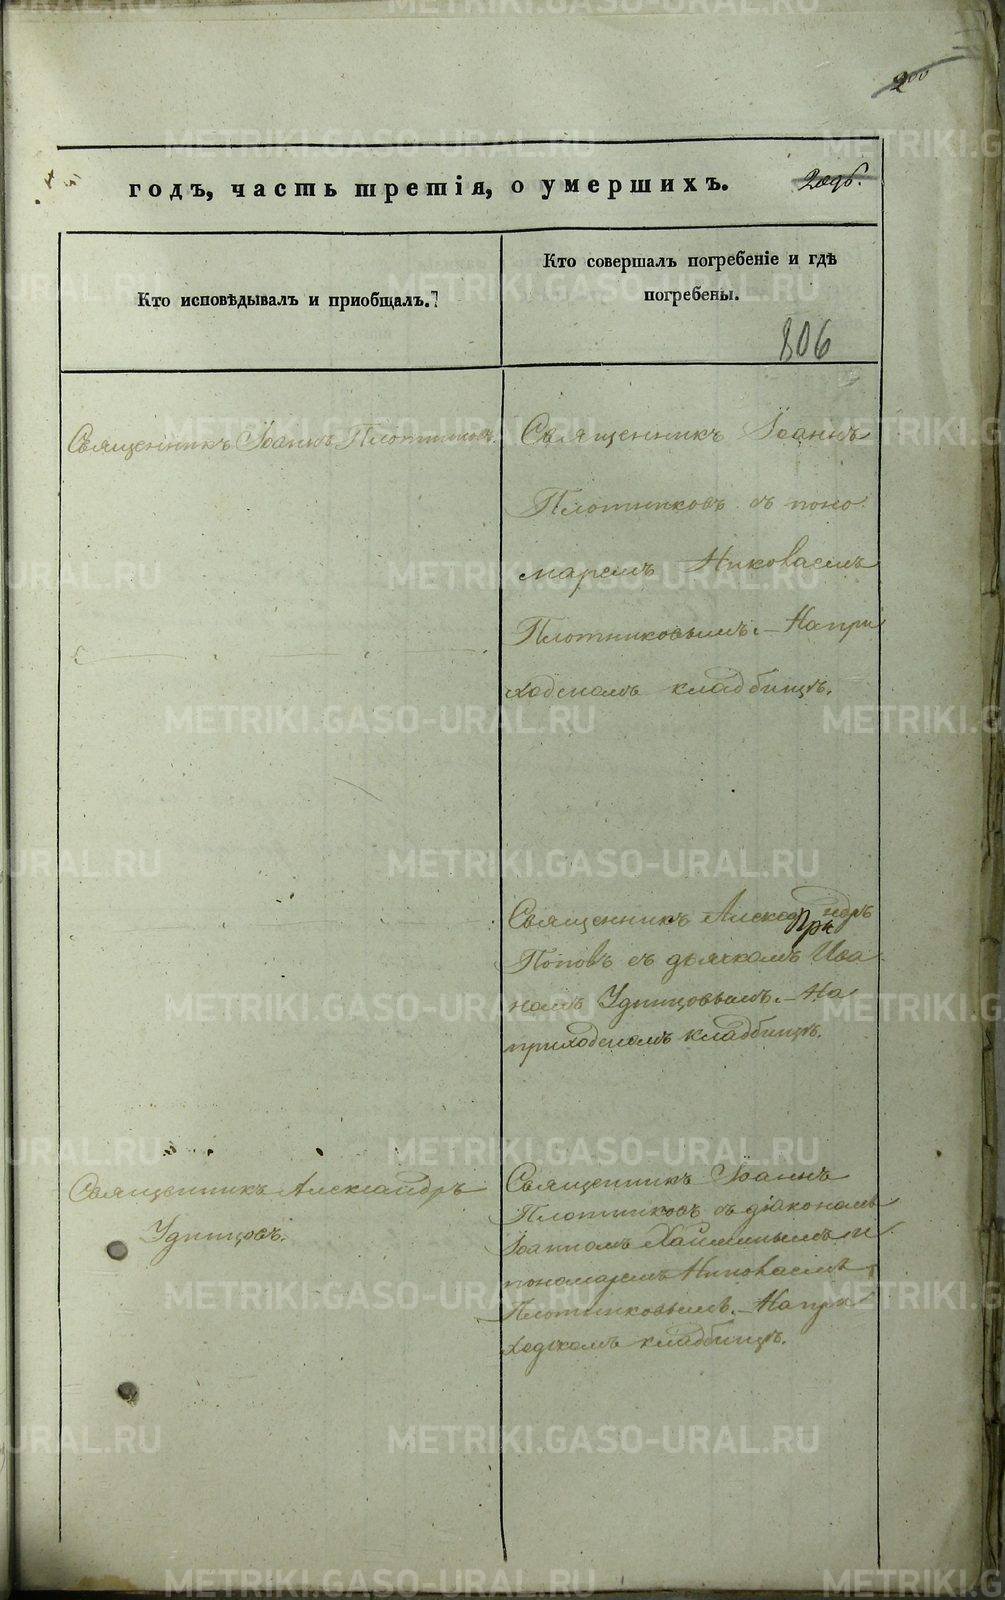 годъ, часть третія, о умершихъ.
Кто исповѣдывалъ и приобщалъ.
Кто совершалъ погребеніе и гдѣ
погребены.
806
Священникъ Іоаннъ Плотниковъ.
Священникъ Іоаннъ
Плотниковъ съ поно
маремъ Николаемъ
Плотниковымъ. – На при
ходскомъ кладбищѣ.
Священникъ Александръ
Поповъ съ дьячкомъ Ива
номъ Удинцовымъ. – На
приходскомъ кладбищѣ.
Священникъ Александръ
Удинцовъ.
Священникъ Іоаннъ
Плотниковъ съ діакономъ
Іоанномъ и
пономаремъ Николаемъ
Плотниковымъ. – На при
ходскомъ кладбищѣ.
METRIKI.GASO-URAL.RU